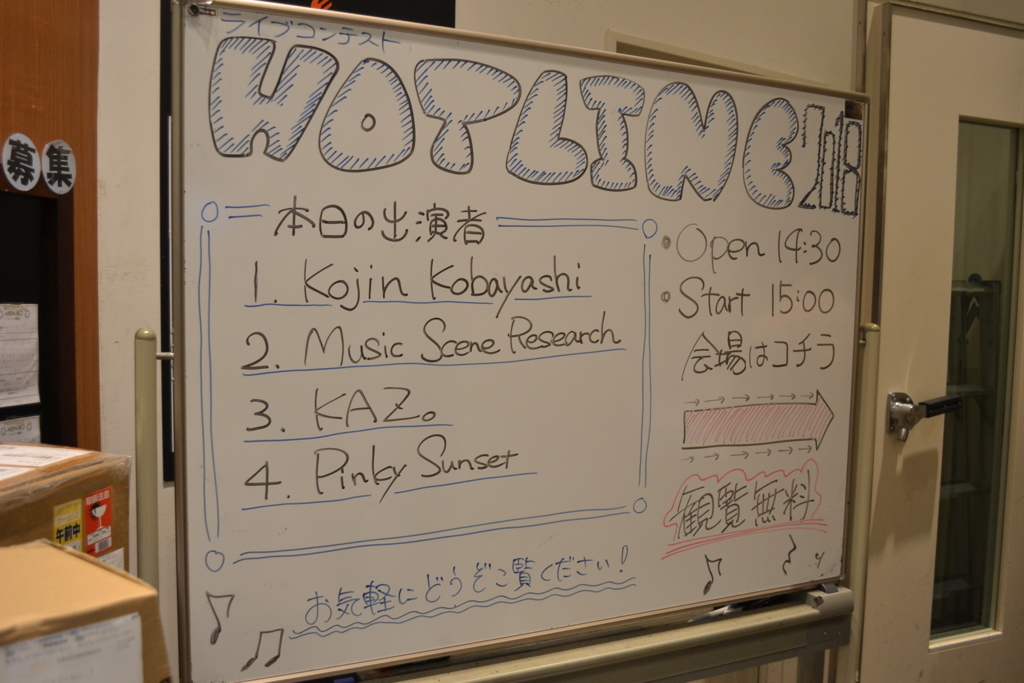 ライブコンテスト
HOTLINE 2018
募集
本日の出演者
1. Kojin Kobayashi
2. Music Scene Research
3. KAZ。
4. Pinky Sunset
Open 14:30
Start 15:00
会場はコチラ
観覧無料
お気軽にどうぞご覧ください!
午前中